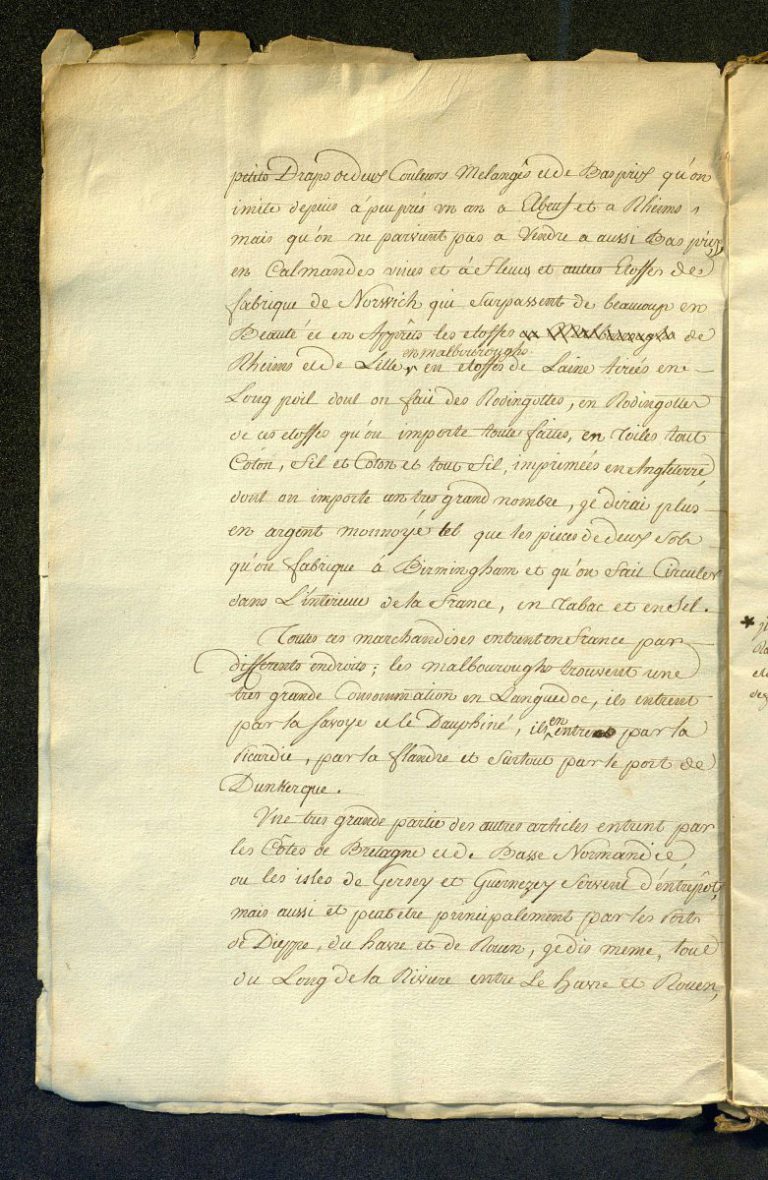 petits Draps de deux Couleurs Melangés et de Bas prix qu'on
imite depuis à peu près un an a Elbeuf et a Rheims,
mais qu'on ne parvient pas a Vendre a aussi Bas prix,
en Calmandes unies et à Fleurs et autres Etoffes de
fabrique de Norwich qui surpassent de beaucoup en
Beauté et en Apprêts les etoffes de
Rheims et de Lille, en malbouroughs en etoffes de Laine tirées en
Long poil dont on fait des Rodingottes, en Rodingottes
de ces etoffes qu'on importe toute faites, en Toiles tout
Coton, fil et Coton et tout fil, imprimées en Angleterre
dont on importe un tres grand nombre, je dirai plus
en argent monnoyé tel que les pieces de deux sols
qu'on fabrique à Birmingham et qu'on fait Circuler
dans L'interieur de la France, en Tabac et en Sel.
Toutes ces marchandises entrent en France par
differents endroits; les malbouroughs trouvent une
tres grande Consommation en Languedoc, ils entrent
par la Savoye et le Dauphiné, ils en entre par la
Picardie, par la flandre et surtout par le port de
Dunkerque.
Une tres grande partie des autres articles entrent par
les Côtes de Bretagne et de Basse Normandie,
ou les isles de Gersey et Guernezey servent d'entrepôt,
mais aussi et peut etre principalement par les Ports
de Dieppe, du havre et de Rouen, je dis meme, tout
du Long de la Riviere entre Le havre et Rouen,